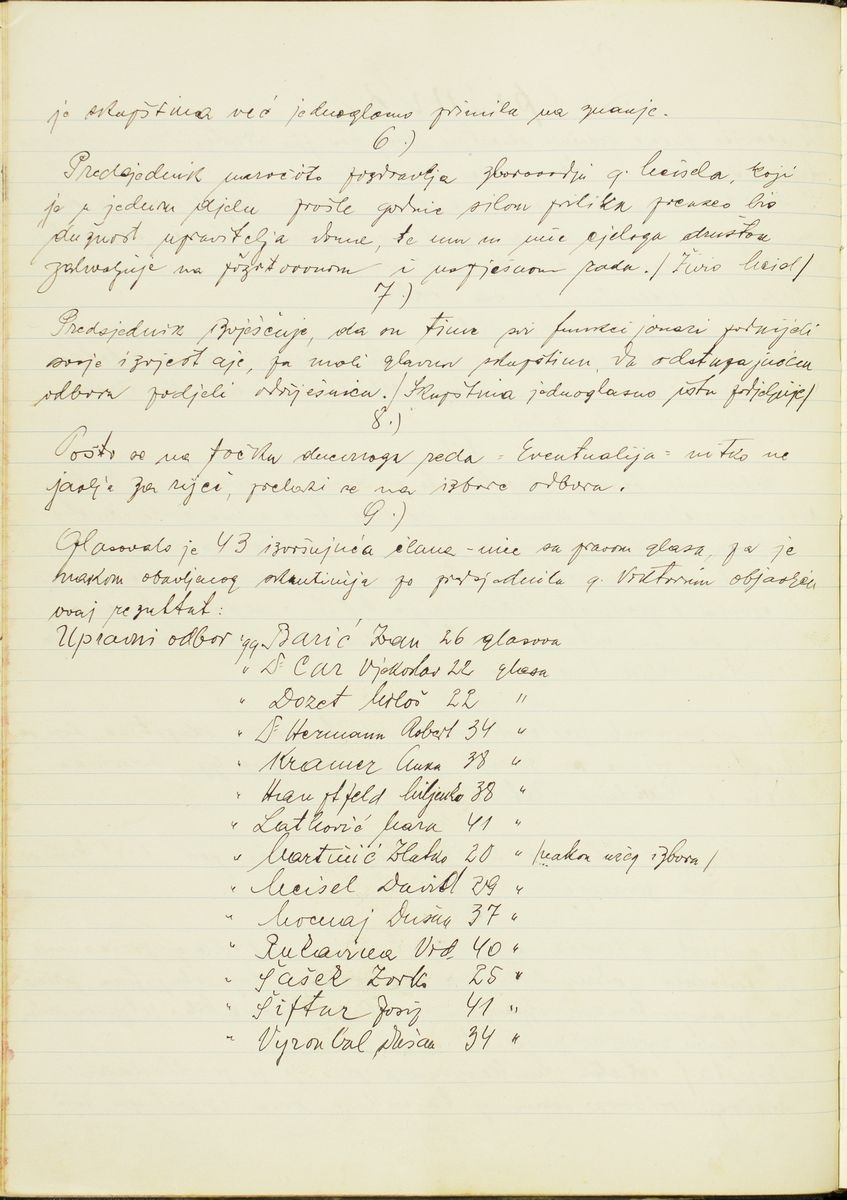 je skupština već jednoglasno primila na znanje.
6.)
Predsjednik naročito pozdravlja zborovodju g. Meisela, koji
je u jednom djelu prošle godine silom prilika preuzeo bio
dužnost upravitelja doma, te mu u ime cjeloga društva
zahvaljuje na požrtvovnom i uspješnom radu. /Živio Meisel/
7.)
Predsjednik izvješćuje, da su time svi funkcijonari podnijeli
svoje izvještaje, pa moli glavnu skupštinu, da odstupajućem
odboru podjeli odrješnicu. /Skupština jednoglasno istu podjeljuje/
8.)
Pošto se na točku dnevnoga reda = Eventualija = nitko ne
javlja za riječ, prelazi se na izbore odbora.
9.)
Glasovalo je 43 izvršujuća člana-ice sa pravom glasa, pa je
nakon obavljenog skrutinija po predsjedniku g. objavljen
ovaj rezultat:
Upravni odbor gg. Barić Ivan 26 glasova
" Dr Car Vjekoslav 22 glasa
" Dozet Miloš 22 "
" Dr Hermann Robert 34 "
" Kramer Anka 38 "
" Miljenko 38 "
" Latković Mara 41 "
" Martinić Zlatko 20 " /nakon užeg izbora/
" Meisel David 29 "
" Mocnaj Dušan 37 "
" Rukavina Vid 40 "
" Šašek Zorko 25 "
" Šiftar Josip 41 "
" Dušan 34 "